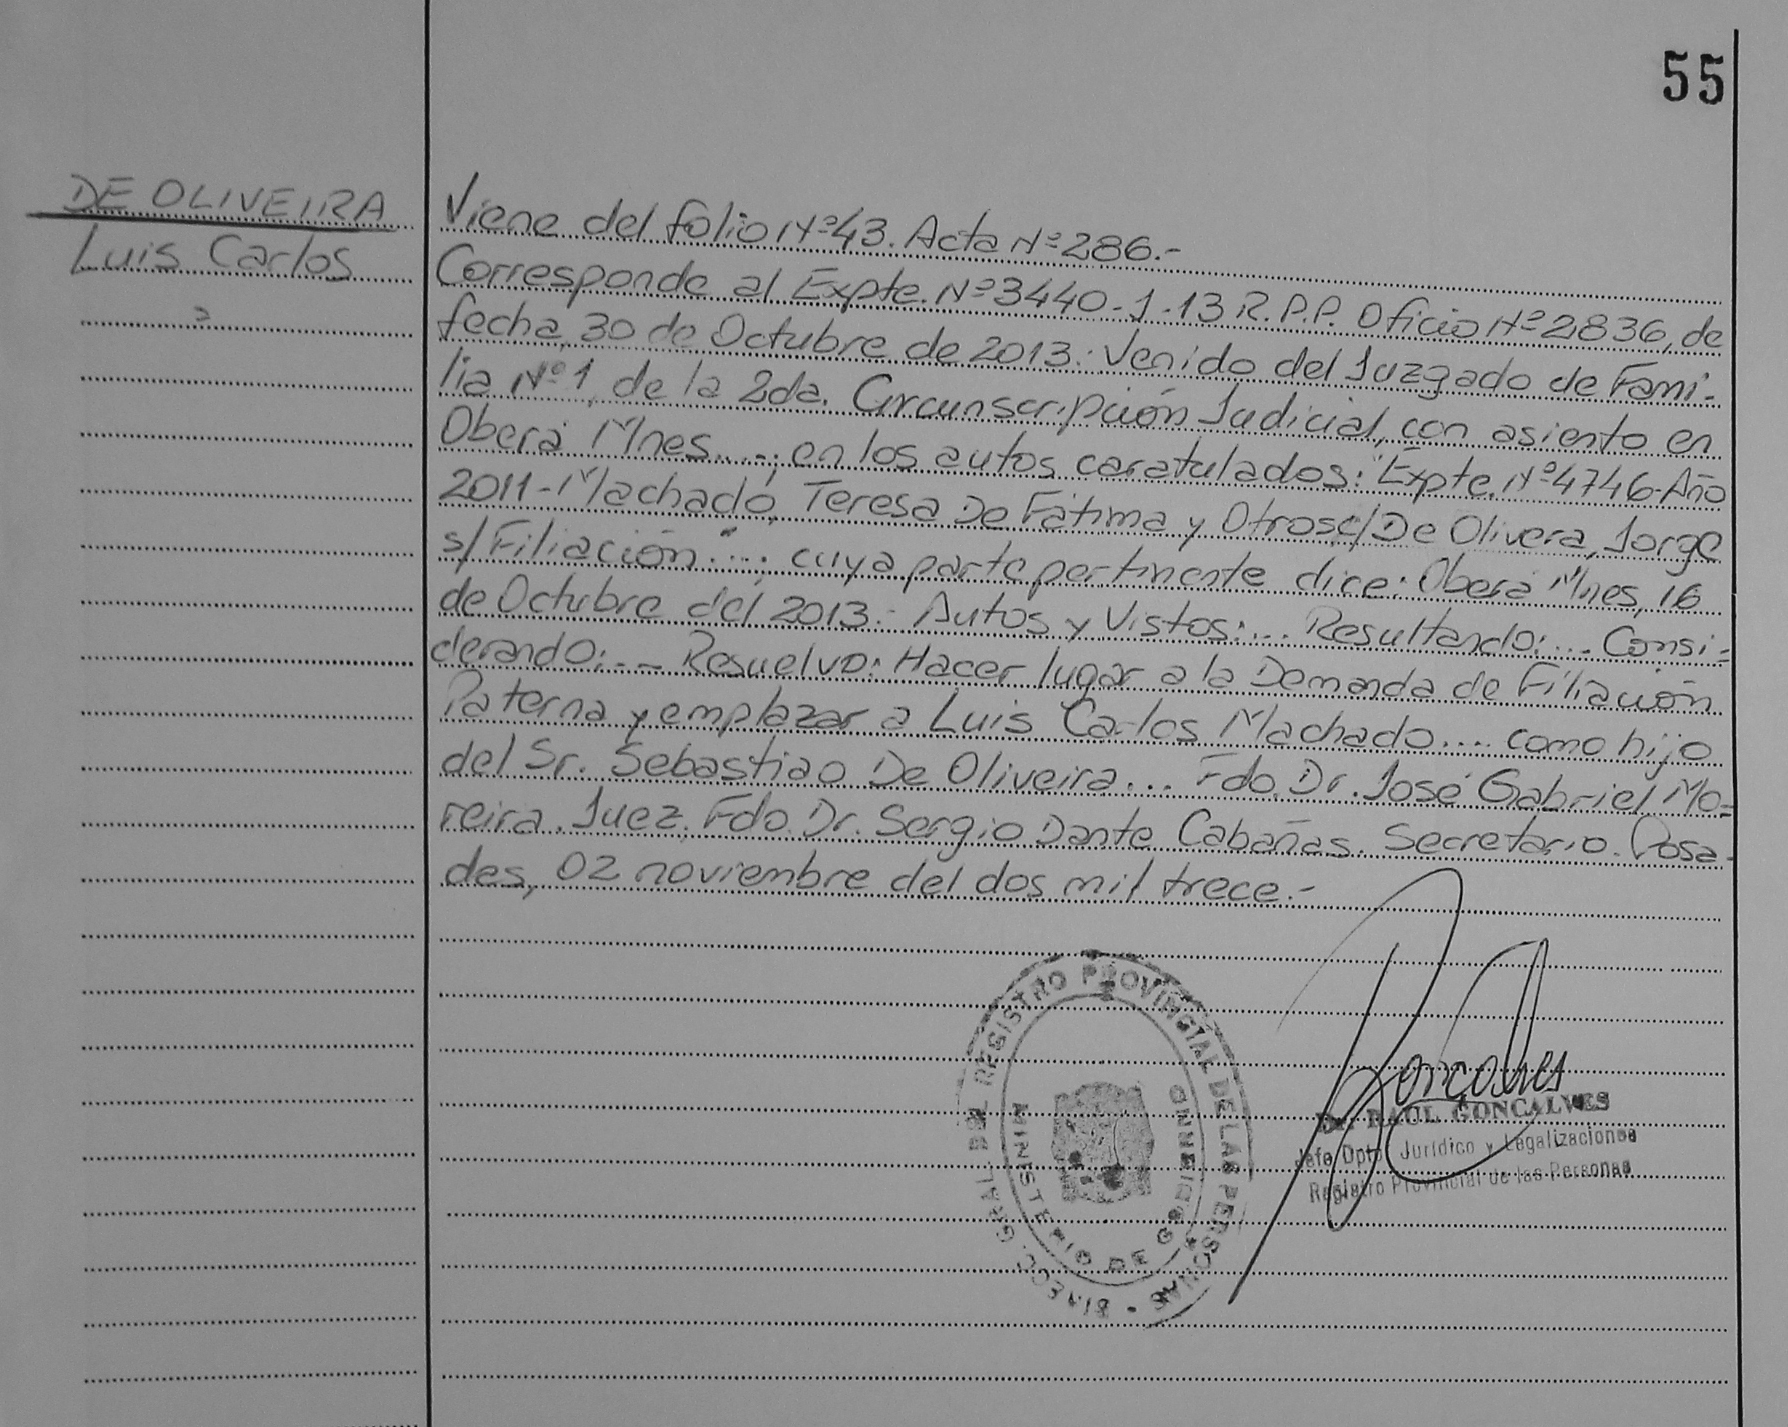 55
DE OLIVEIRA
Luis Carlos
Viene del folio Nº43. Acta Nº286.-
Corresponde al Expte. Nº3440-1-13 R.P.P. Oficio Nº2836, de
fecha, 30 de Octubre de 2013.: Venido del Juzgado de Fami-
lia Nº1, de la 2da. Circunscripción Judicial, con asiento en
Oberá Mnes...; en los autos caratulados: "Expte. Nº4746-Año
2011-Machado, Teresa De Fátima y Otrosc/De Olivera, Jorge
s/Filiación"...; cuya parte pertinente dice: Oberá Mnes, 16
de Octubre del 2013.- Autos y Vistos:... Resultando:... Consi=
derando:... Resuelvo: Hacer lugar a la Demanda de Filiación
Paterna y emplazar a Luis Carlos Machado.... como hijo
del Sr. Sebastiao De Oliveira... Fdo. Dr. José Gabriel Mo=
reira. Juez. Fdo. Dr. Sergio Dante Cabañas. Secretario. Posa-
das, 02 noviembre del dos mil trece.-
DIRECC. GRAL. DEL REGISTRO PROVINCIAL DE LAS PERSONAS
MINISTERIO DE GOBIERNO
Goncalves
Dr. RAUL GONCALVES
Jefe Dpto. Jurídico y Legalizaciones
Registro Provincial de las Personas